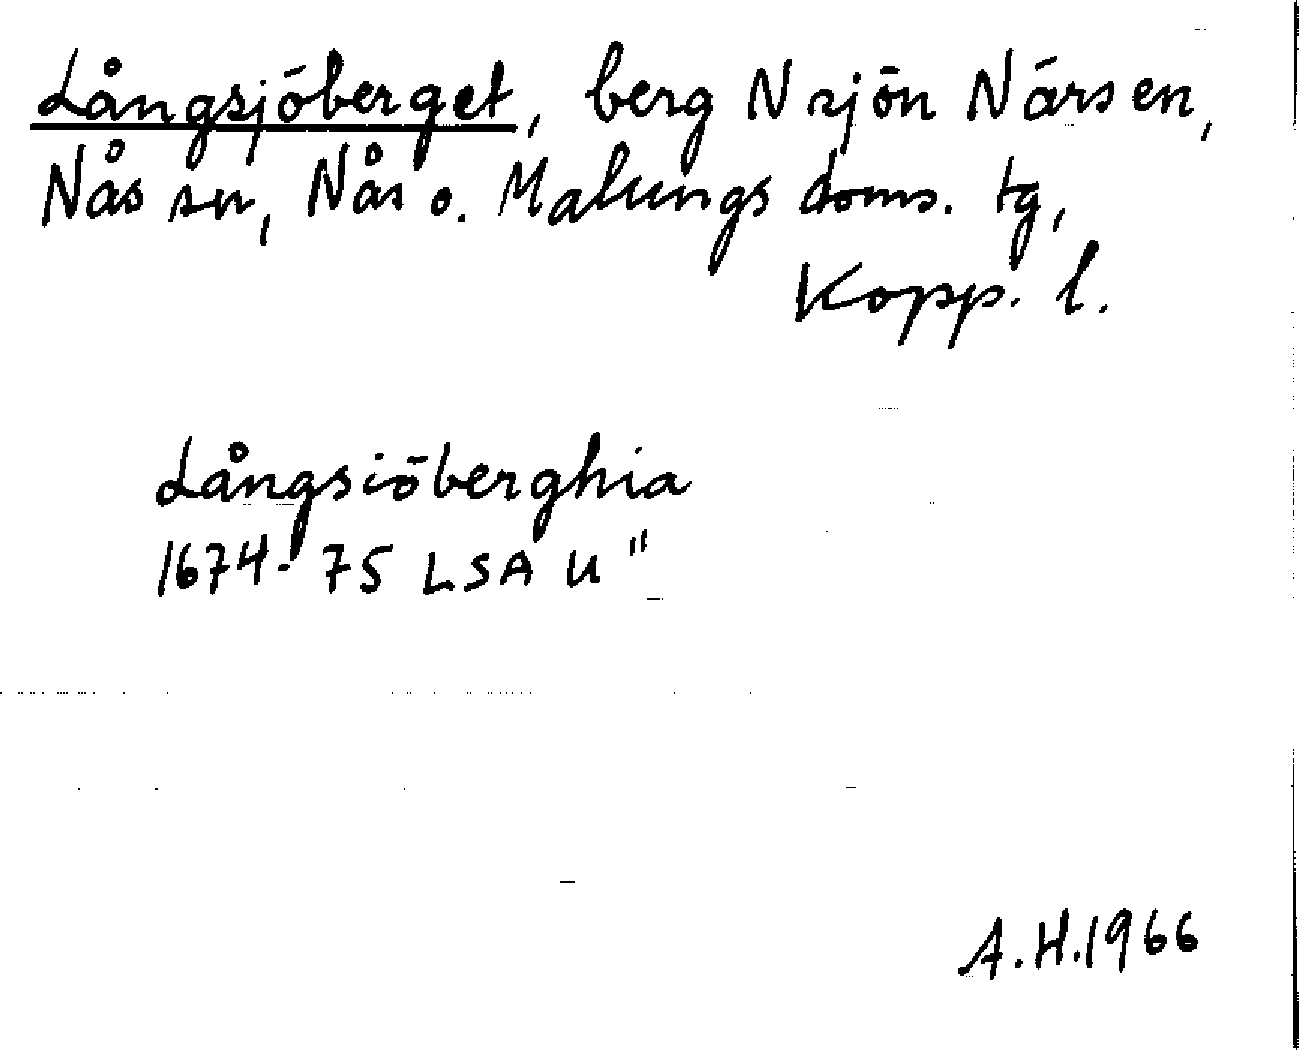 Långsjöberget, berg N sjön Närsen,
Nås sn, Nås o. Malungs doms. tg,
Kopp. l.
Långsiöberghia
1674-75 LSA U"
A.H.1966